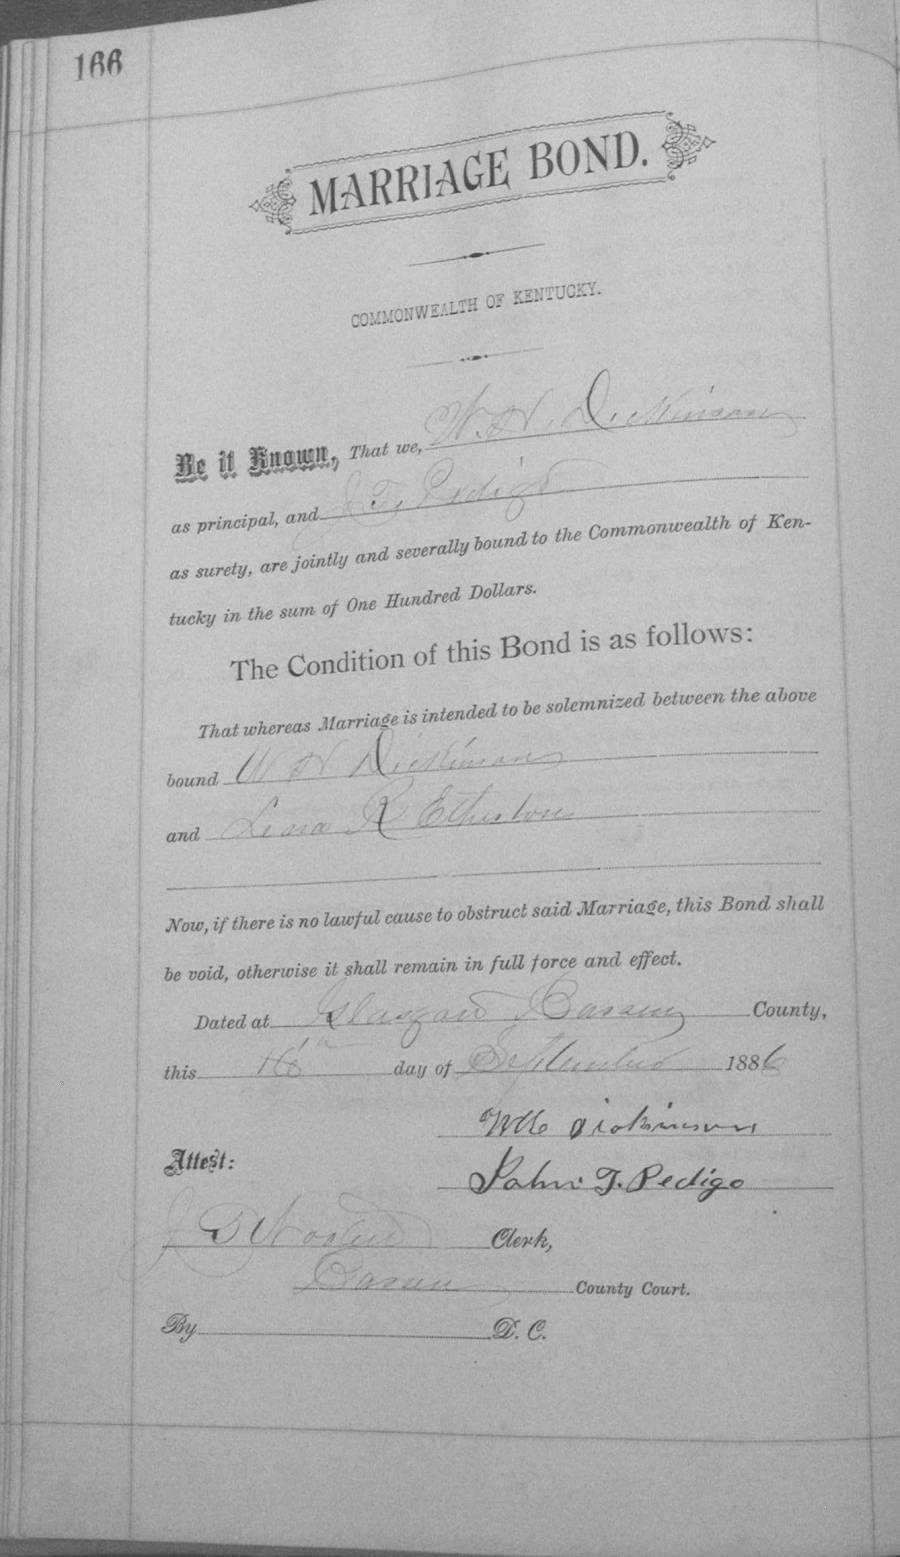 166
MARRIAGE BOND.
COMMONWEALTH OF KENTUCKY.
Be it Known, That we, W. H. Dickinson
as principal, and J. T. Pedigo
as surety, are jointly and severally bound to the Commonwealth of Ken-
tucky in the sum of One Hundred Dollars.
The Condition of this Bond is as follows:
That whereas Marriage is intended to be solemnized between the above
bound W H Dickinson
and R Etherton
Now, if there is no lawful cause to obstruct said Marriage, this Bond shall
be void, otherwise it shall remain in full force and effect.
Dated at Glasgow Barren County,
this 16 day of September 1886
Dickinson
Attest:
John T. Pedigo
J Clerk,
Barren County Court.
By D. C.